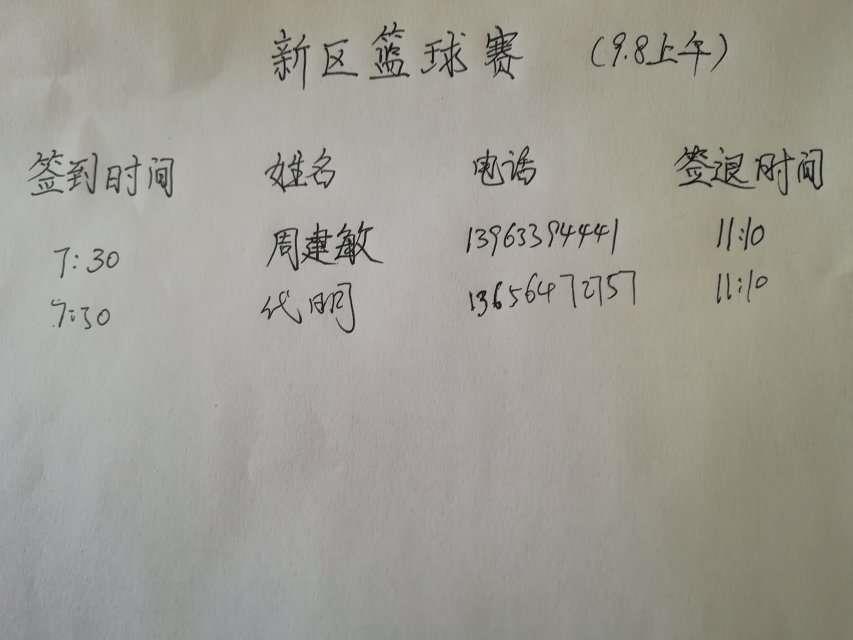 新区篮球赛 (9.8上午)
签到时间 姓名 电话 签退时间
7:30 周建敏 13963394441 11:10
7:30 代明 13656472757 11:10